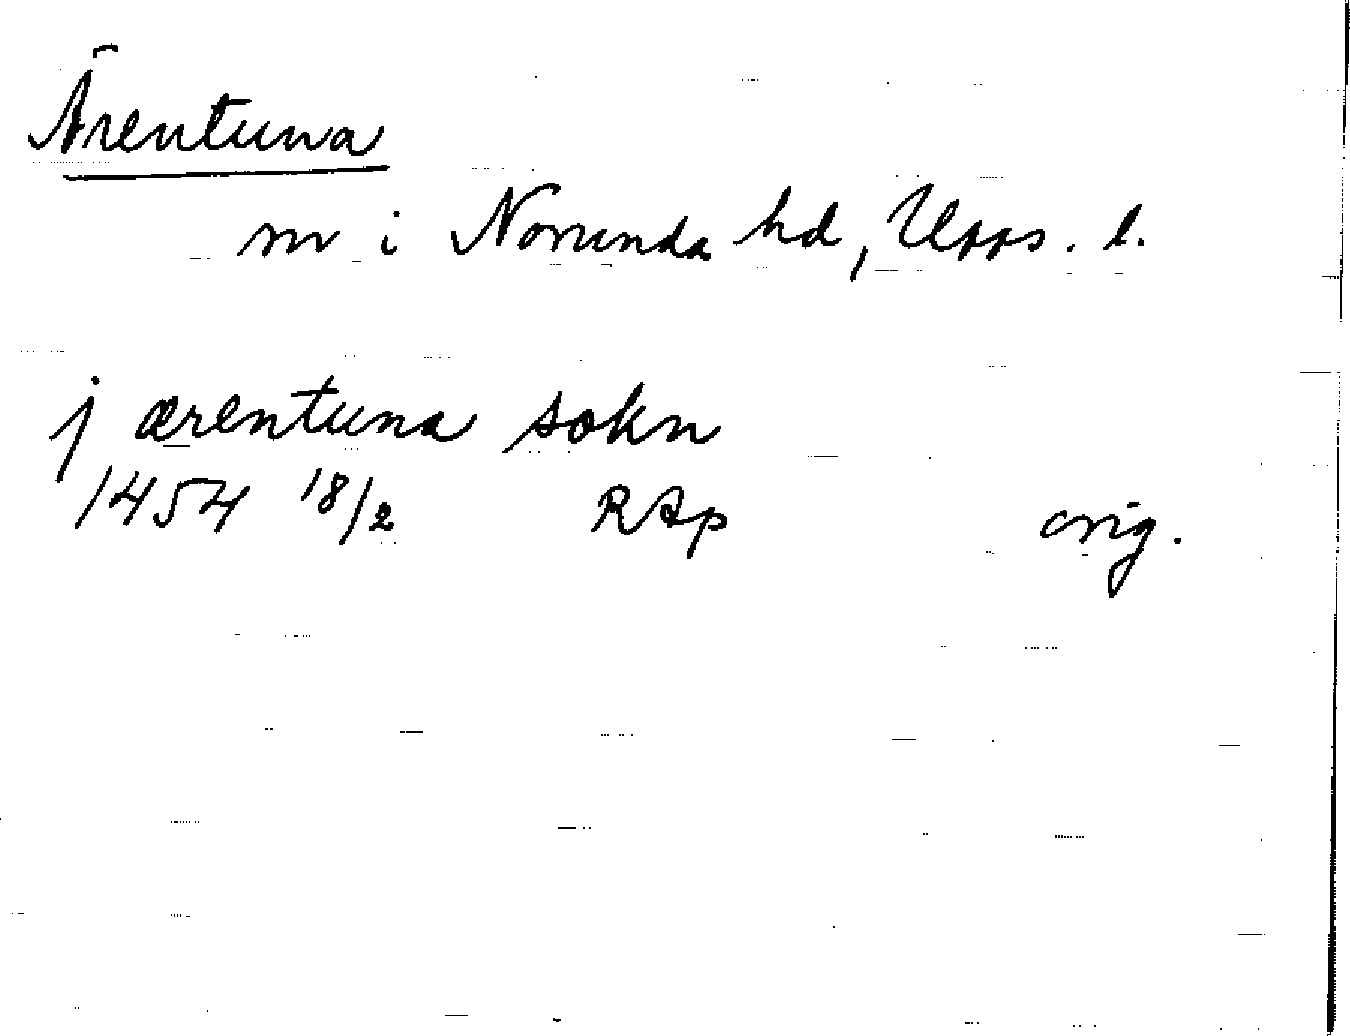 Ärentuna
sn i Norunda hd, Upps. l.
j ærentuna sokn
1454 18/2 RAp orig.